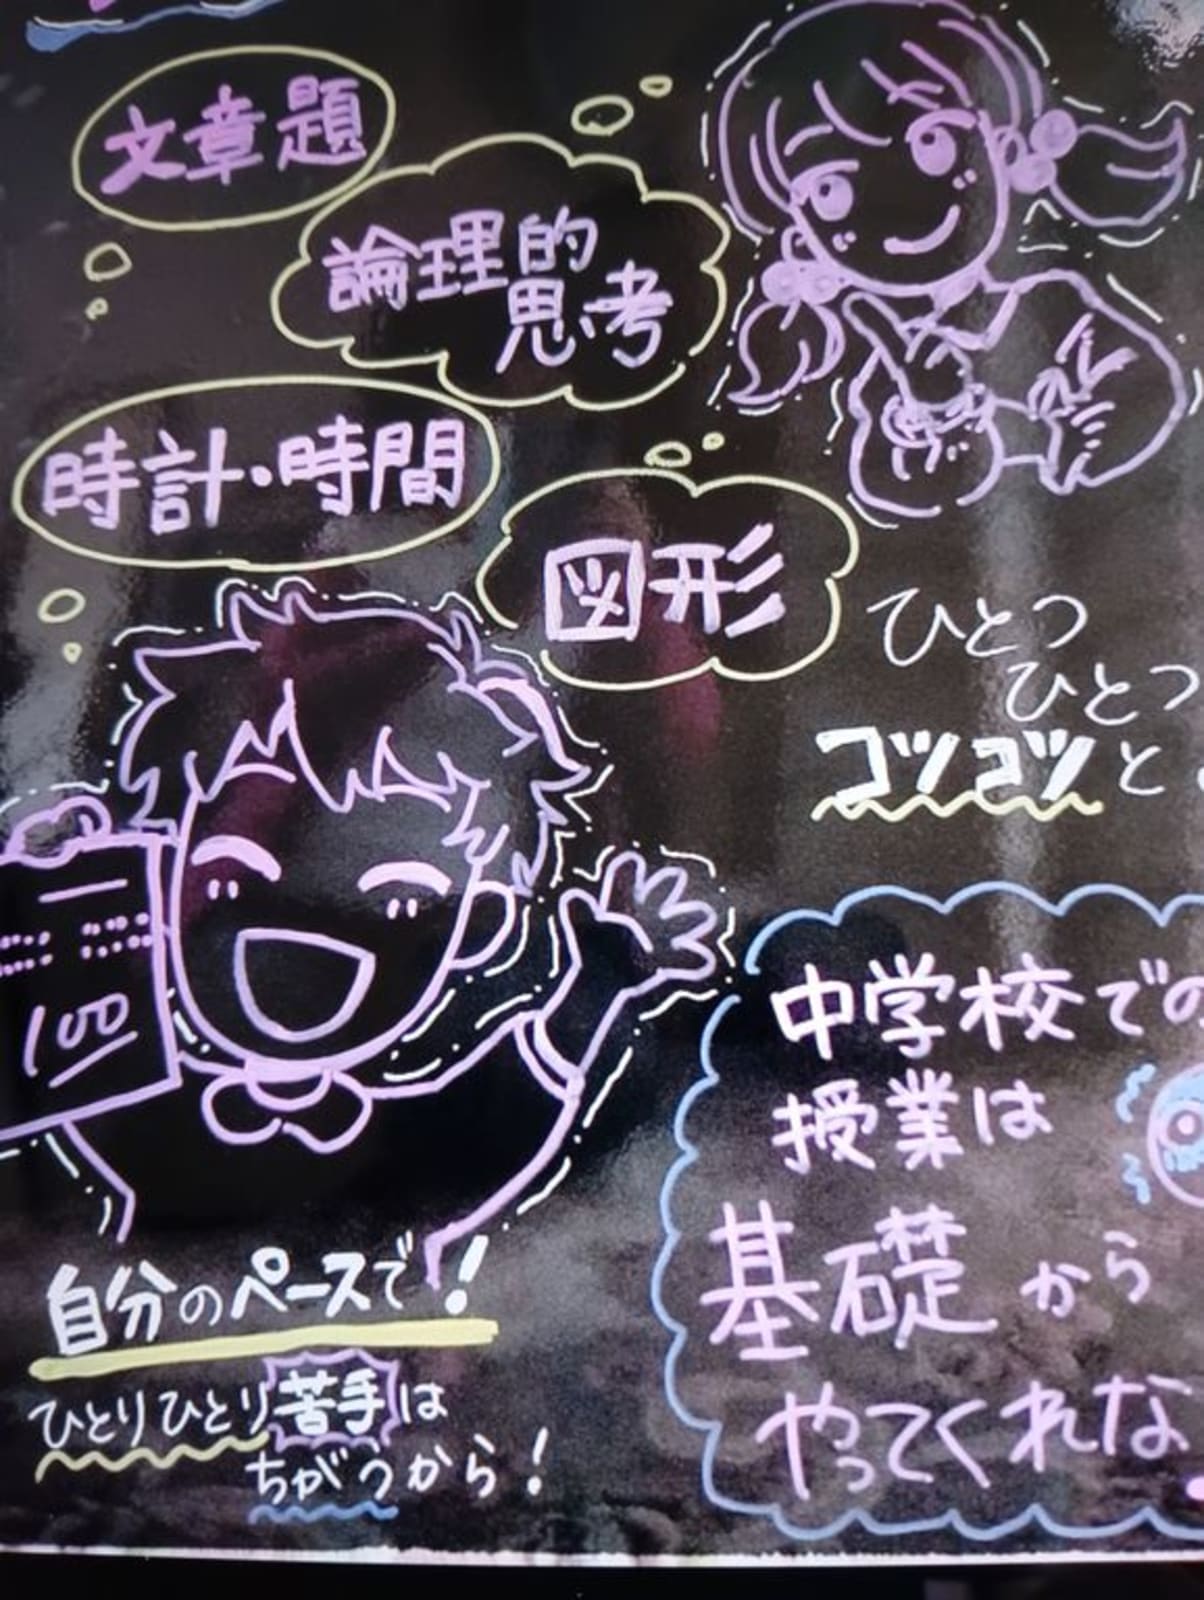 文章題
論理的
思考
時計・時間
図形
ひとつ
ひとつ
コツコツと
100
中学校での
授業は
基礎から
やってくれな
自分のペースで！
ひとりひとり苦手は
ちがうから！